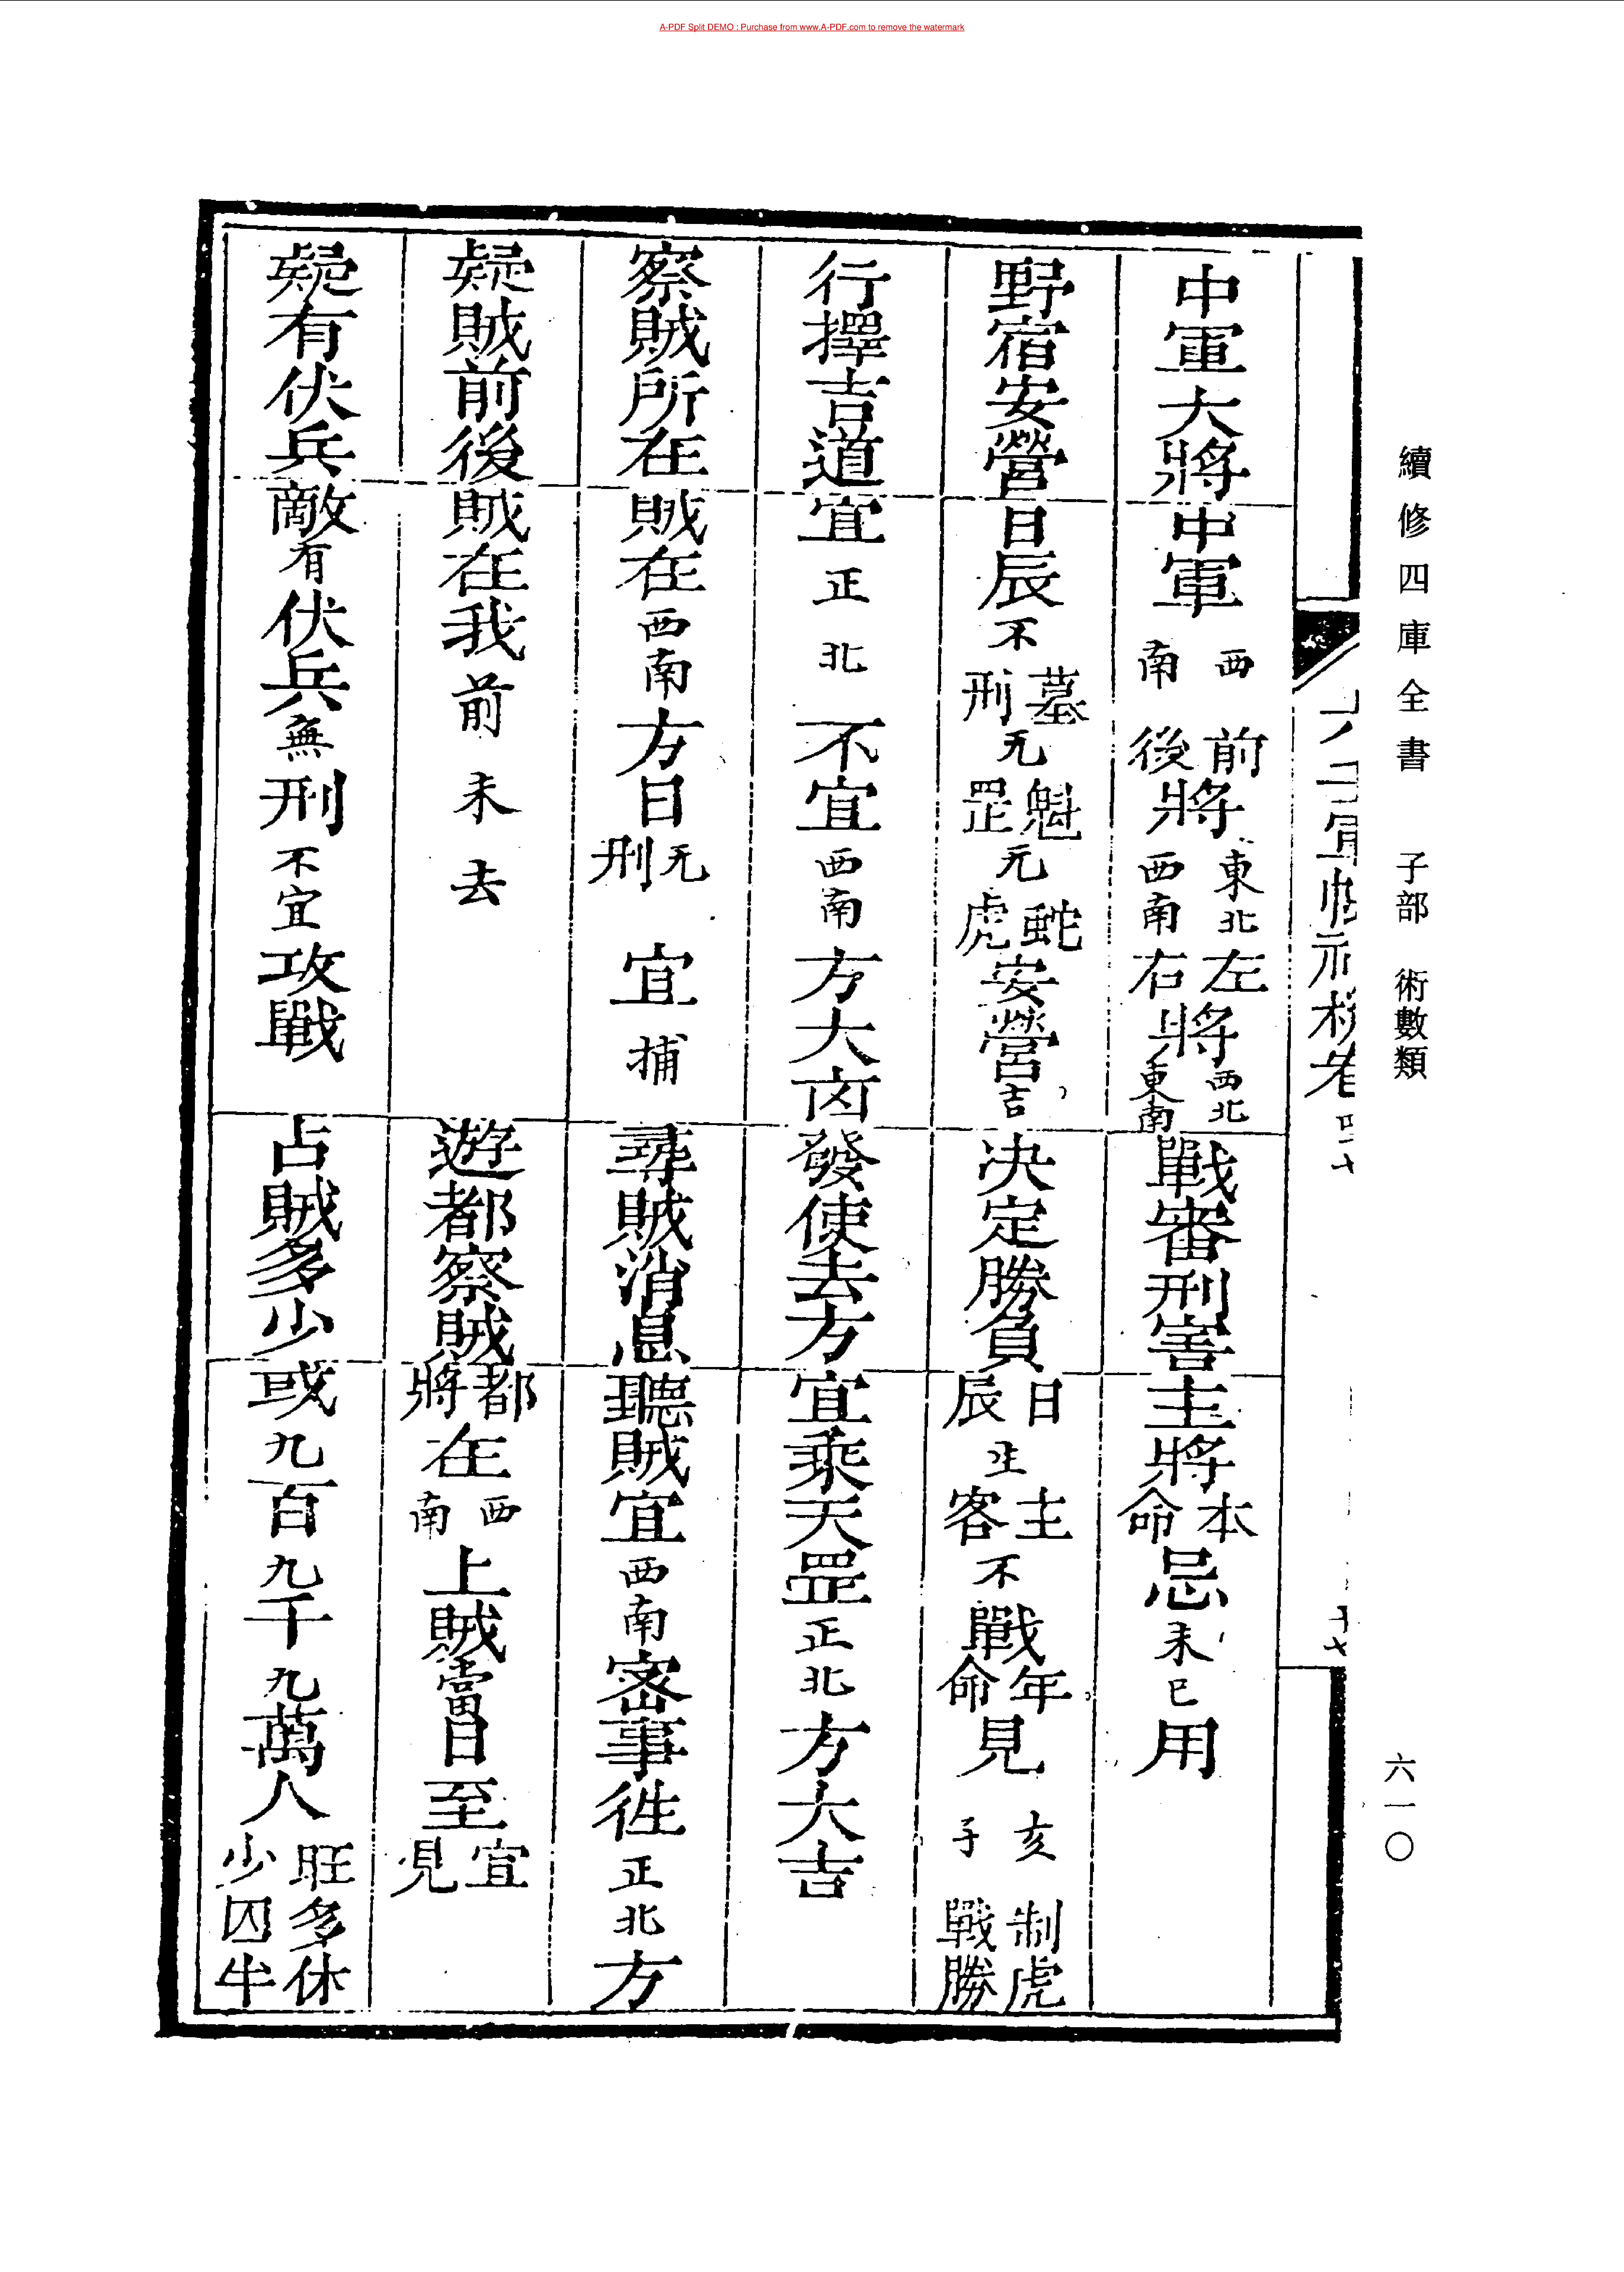 A-PDF Split DEMO : Purchase from www.A-PDF.com to remove the watermark
續修四庫全書 子部 術數類
六一〇
中軍大將
中軍西南前後將東北西南左右將西北東南
戰審刑害
主將本命忌未巳用
野宿安營
日辰不墓刑无魁罡元蛇虎安營吉
决定勝負
日辰生主客不戰年命見亥子制虎戰勝
行擇吉道
宜正北不宜西南方大凶
發使去方
宜乘天罡正北方大吉
察賊所在
賊在西南方日无刑宜捕
尋賊消息
聽賊宜西南密事徃正北方
疑賊前後
賊在我前未去
遊都察賊
都將在西南上賊當日至宜見
疑有伏兵
敵有伏兵無刑不宜攻戰
占賊多少
或九百九千九萬人旺多休少囚半